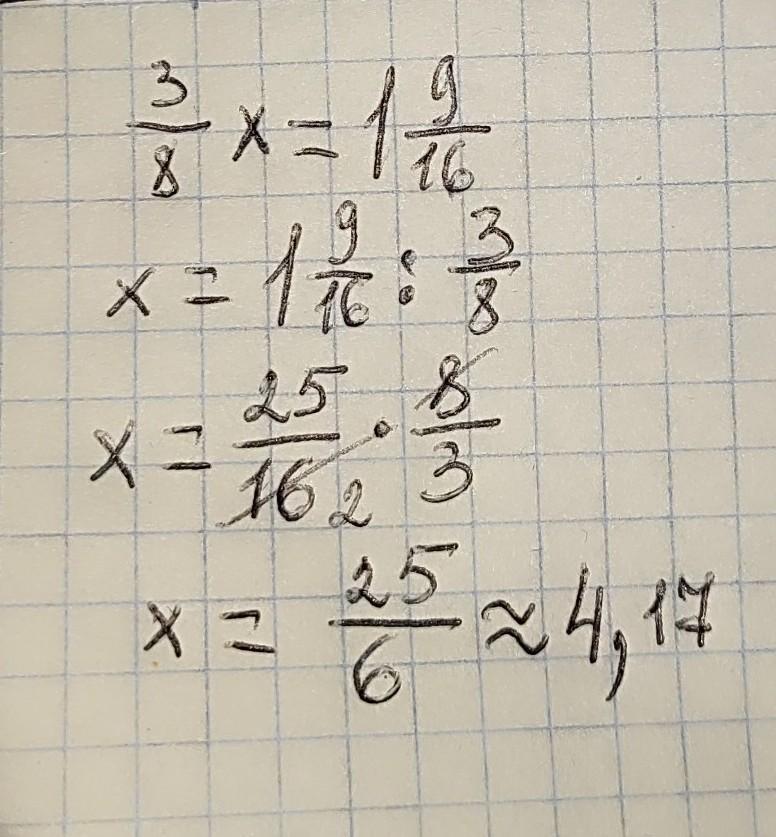 3/8 x = 1 9/16
x = 1 9/16 : 3/8
x = 25/16 2 · 8/3
x = 25/6 ≈ 4,17